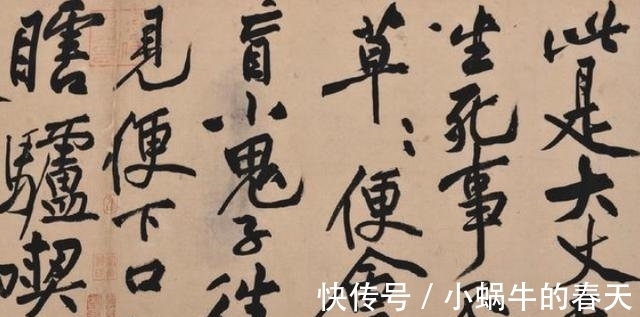 此是大丈
生死事
草〻便會
盲小鬼子往
見便下口
瞎驢喫
快传号 / 小蜗牛的春天